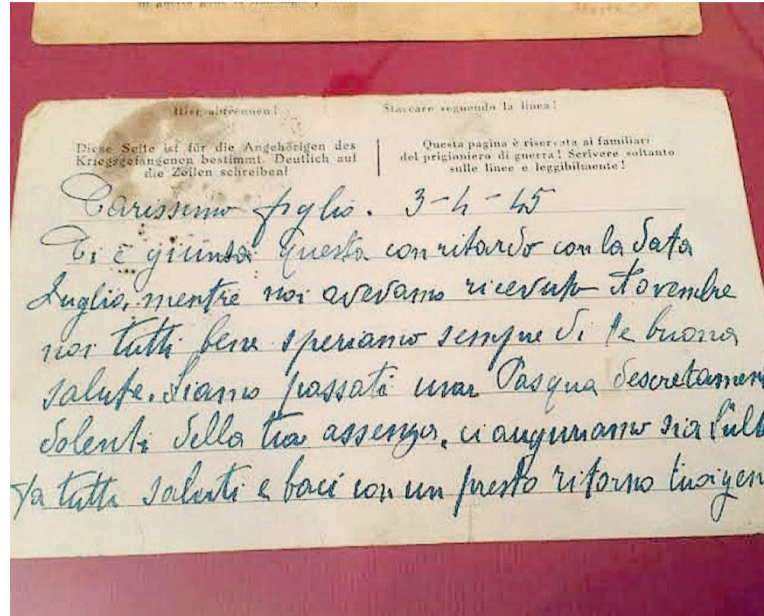 Hier abtrennen! Staccare seguendo la linea!
Diese Seite ist für die Angehörigen des
Kriegsgefangenen bestimmt. Deutlich auf
die Zeilen schreiben!
Questa pagina è riservata ai familiari
del prigioniero di guerra! Scrivere soltanto
sulle linee e leggibilmente!
Carissimo figlio. 3-4-45
Ci è giunta questa con ritardo con la data
Luglio, mentre noi avevamo ricevuto Novembre
noi tutti bene speriamo sempre di te buona
salute. Siamo passati una Pasqua descretamen
dolenti della tua assenza, ci auguriamo sia l'ult
Da tutti saluti e baci con un presto ritorno tuoi gen